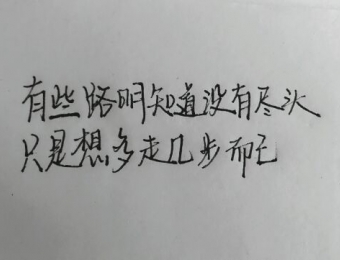 有些路明知道没有尽头
只是想多走几步而已